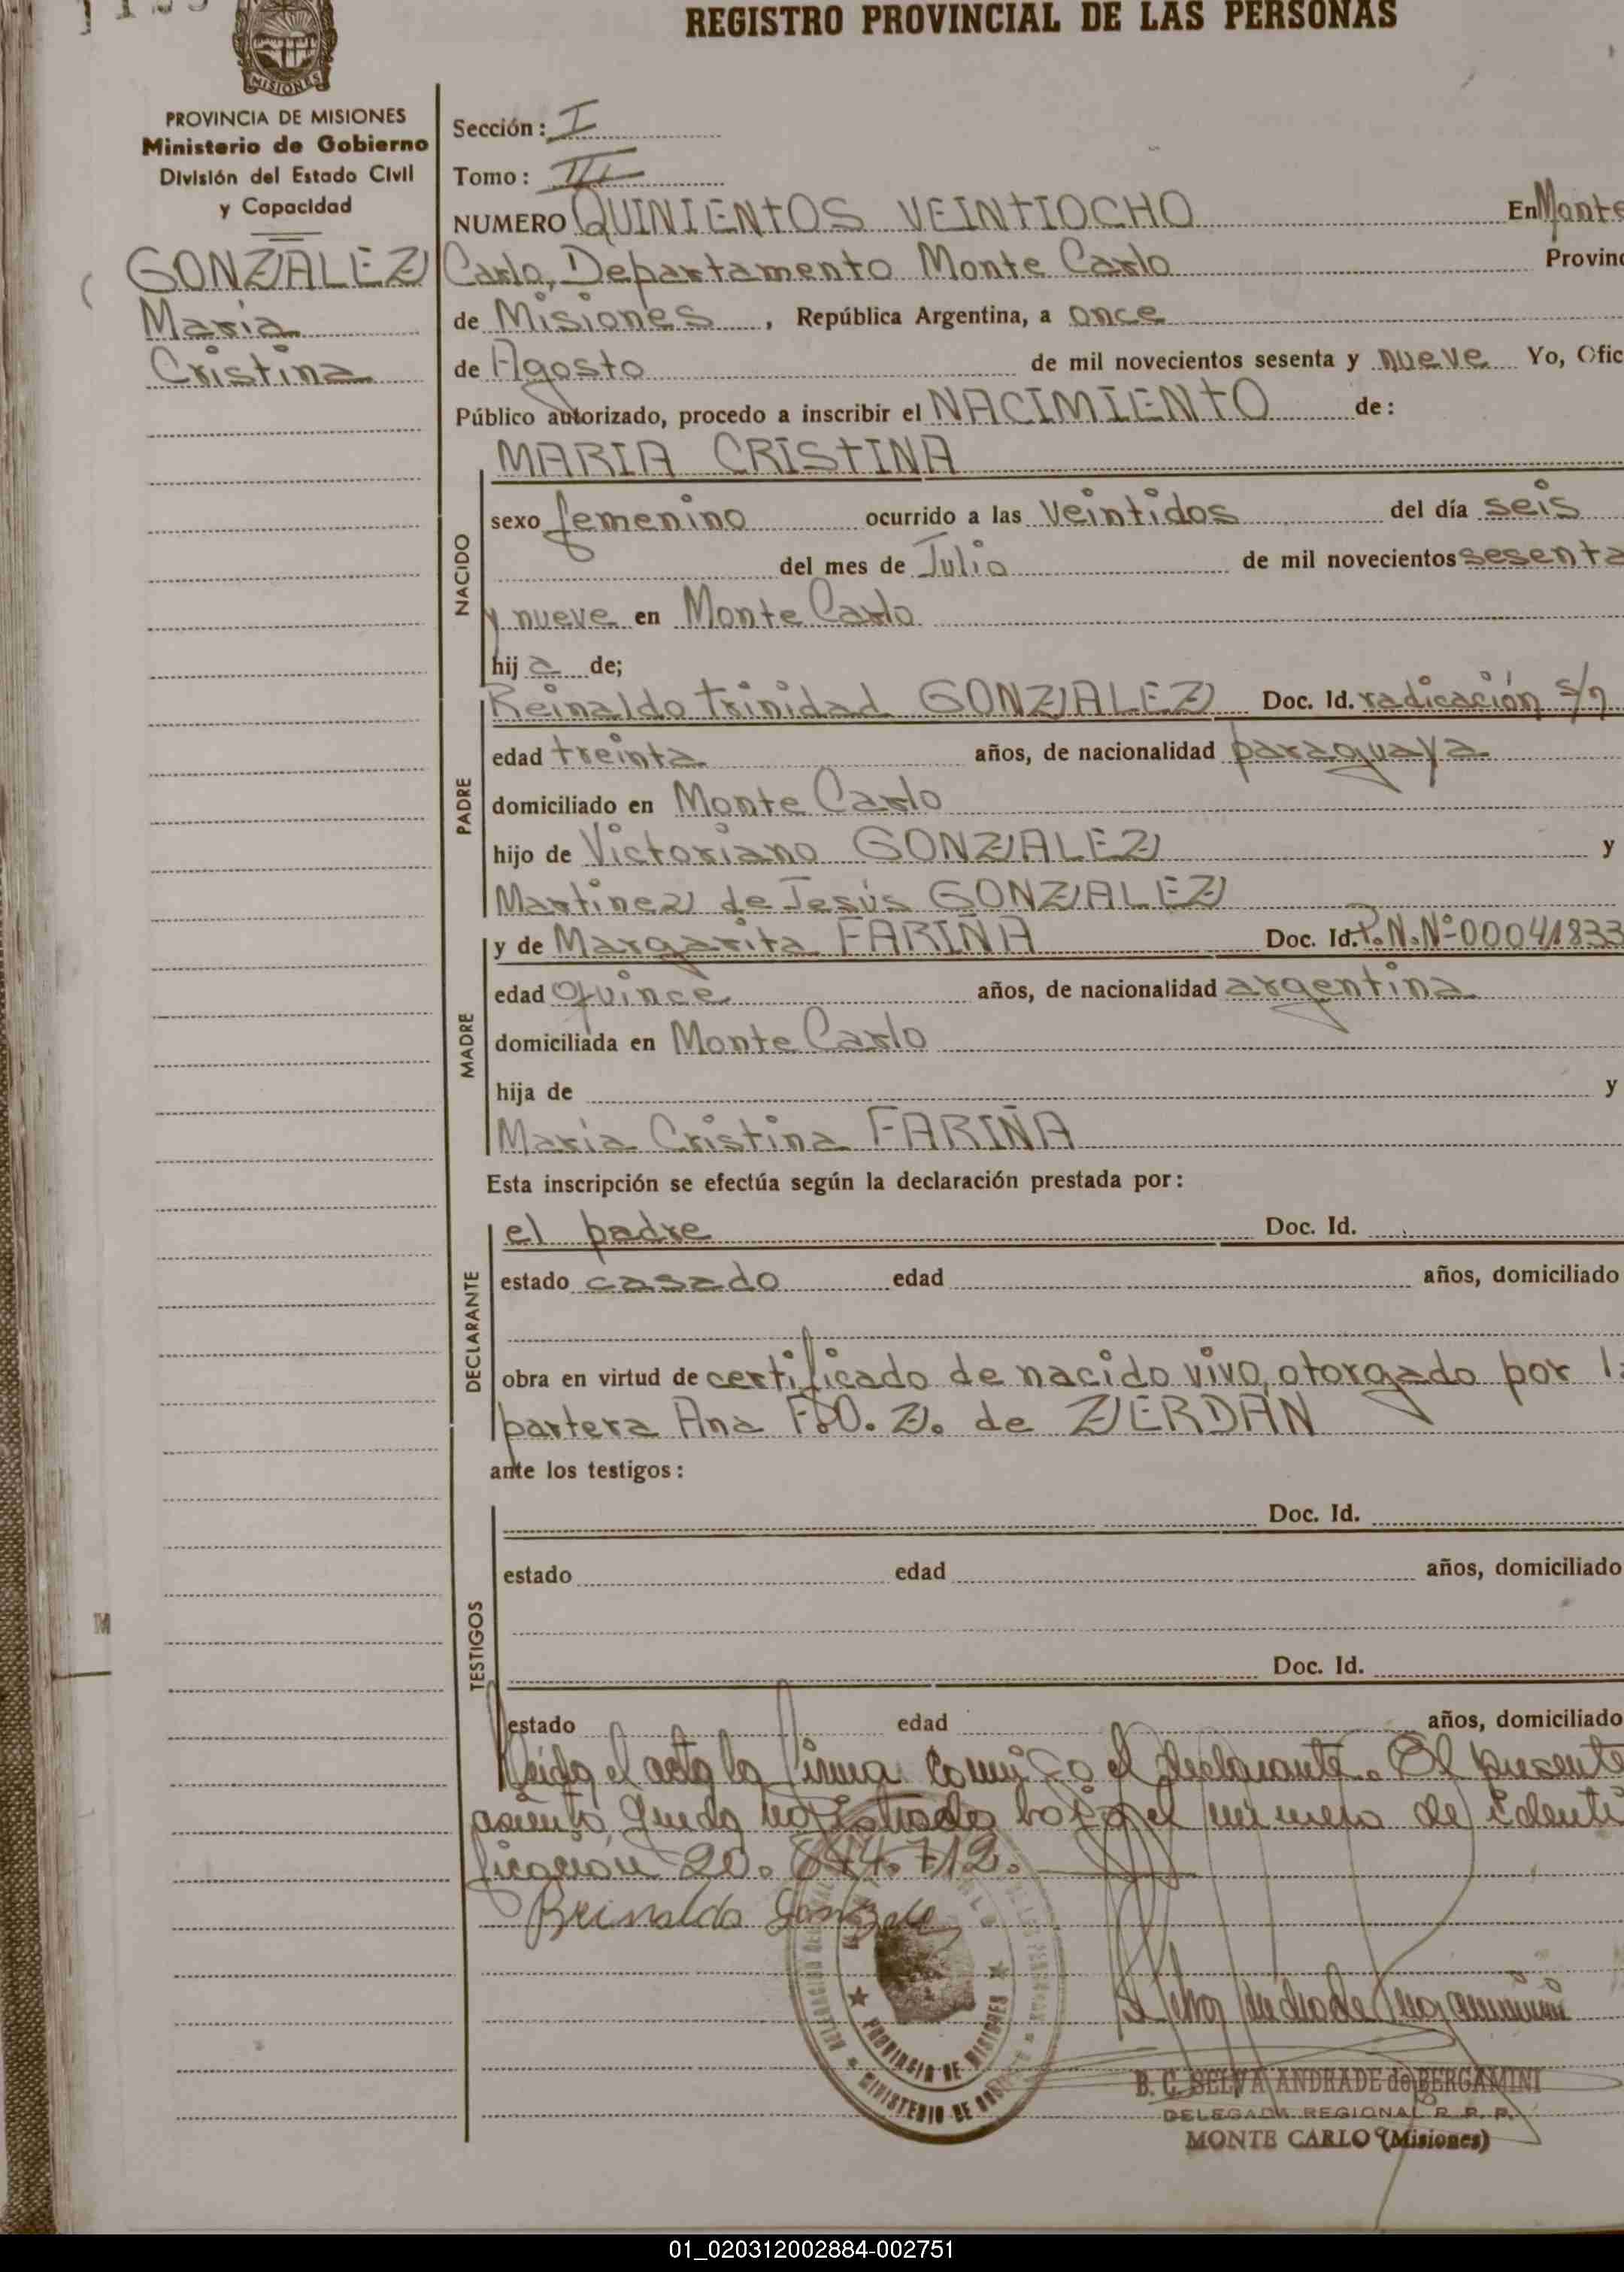 REGISTRO PROVINCIAL DE LAS PERSONAS
MISIONES
PROVINCIA DE MISIONES
Ministerio de Gobierno
División del Estado Civil
y Capacidad
GONZALEZ
Maria
Cristina
Sección: I
Tomo: III
NUMERO QUINIENTOS VEINTIOCHO En Monte
Carlo, Departamento Monte Carlo Provinc
de Misiones, República Argentina, a once
de Agosto de mil novecientos sesenta y nueve Yo, Ofic
Público autorizado, procedo a inscribir el NACIMIENTO de:
MARIA CRISTINA
NACIDO
sexo femenino ocurrido a las veintidos del día seis
del mes de Julio de mil novecientos sesenta
y nueve en Monte Carlo
hij a de;
PADRE
Reinaldo Trinidad GONZALEZ Doc. Id. radicación s/n
edad treinta años, de nacionalidad paraguaya
domiciliado en Monte Carlo
hijo de Victoriano GONZALEZ y
Martinez de Jesús GONZALEZ
MADRE
y de Margarita FARIÑA Doc. Id. P.N.Nº00041833
edad Quince años, de nacionalidad argentina
domiciliada en Monte Carlo
hija de y
Maria Cristina FARIÑA
Esta inscripción se efectúa según la declaración prestada por:
DECLARANTE
el padre Doc. Id.
estado casado edad años, domiciliado
obra en virtud de certificado de nacido vivo, otorgado por l
partera Ana F.O.Z. de ZERDAN
ante los testigos:
TESTIGOS
Doc. Id.
estado edad años, domiciliado
Doc. Id.
estado edad años, domiciliado
Leida el acta la firma conmigo el declarante. El presente
asiento queda registrado bajo el numero de identi
ficación 20. 844.712.
Reinaldo Gonzalez
PROVINCIA DE MISIONES
MINISTERIO DE
B. C. SELVA ANDRADE de BERGAMINI
DELEGADA REGIONAL R. P. P.
MONTE CARLO (Misiones)
01_020312002884-002751